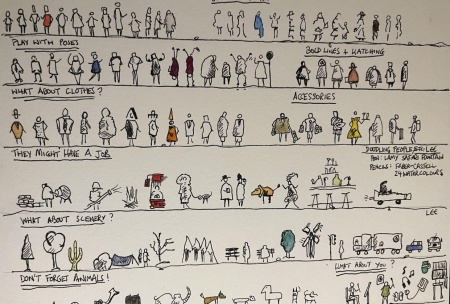 PLAY WITH POSES
BOLD LINES + HATCHING
WHAT ABOUT CLOTHES?
ACCESSORIES
THEY MIGHT HAVE A JOB
PEN: LAMY SAFARI FOUNTAIN
PENCILS: FABER-CASTELL
24 WATERCOLOURS
WHAT ABOUT SCENERY?
LEE
DON'T FORGET ANIMALS!
WHAT ABOUT YOU?